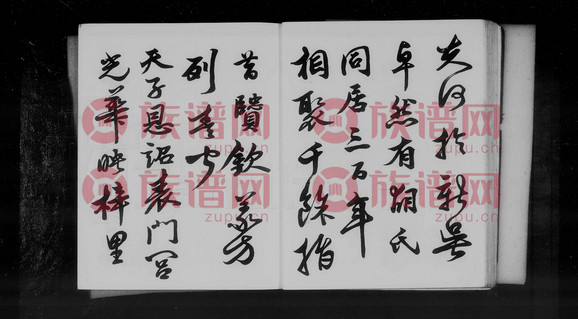 於新吳
卓然有胡氏
同居三百年
相聚千餘指
昔賢欽義方
列
天子恩詔表門閭
光華映梓里
族谱网
zupu.cn
族谱网
zupu.cn
族谱网
zupu.cn
族谱网
zupu.cn